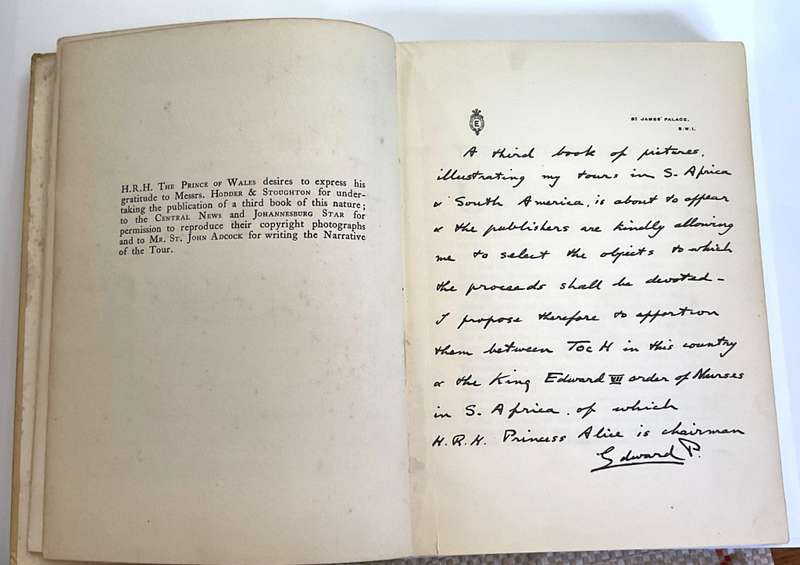 H.R.H. THE PRINCE OF WALES desires to express his
gratitude to Messrs. HODDER & STOUGHTON for under-
taking the publication of a third book of this nature;
to the CENTRAL NEWS and JOHANNESBURG STAR for
permission to reproduce their copyright photographs
and to MR. ST. JOHN ADCOCK for writing the Narrative
of the Tour.
E
ST JAMES' PALACE,
S.W.1.
A third book of pictures,
illustrating my tours in S. Africa
& South America, is about to appear
& the publishers are kindly allowing
me to select the objects to which
the proceeds shall be devoted –
I propose therefore to apportion
them between Toc H in this country
& the King Edward VII order of Nurses
in S. Africa, of which
H.R.H. Princess Alice is chairman
Edward P.